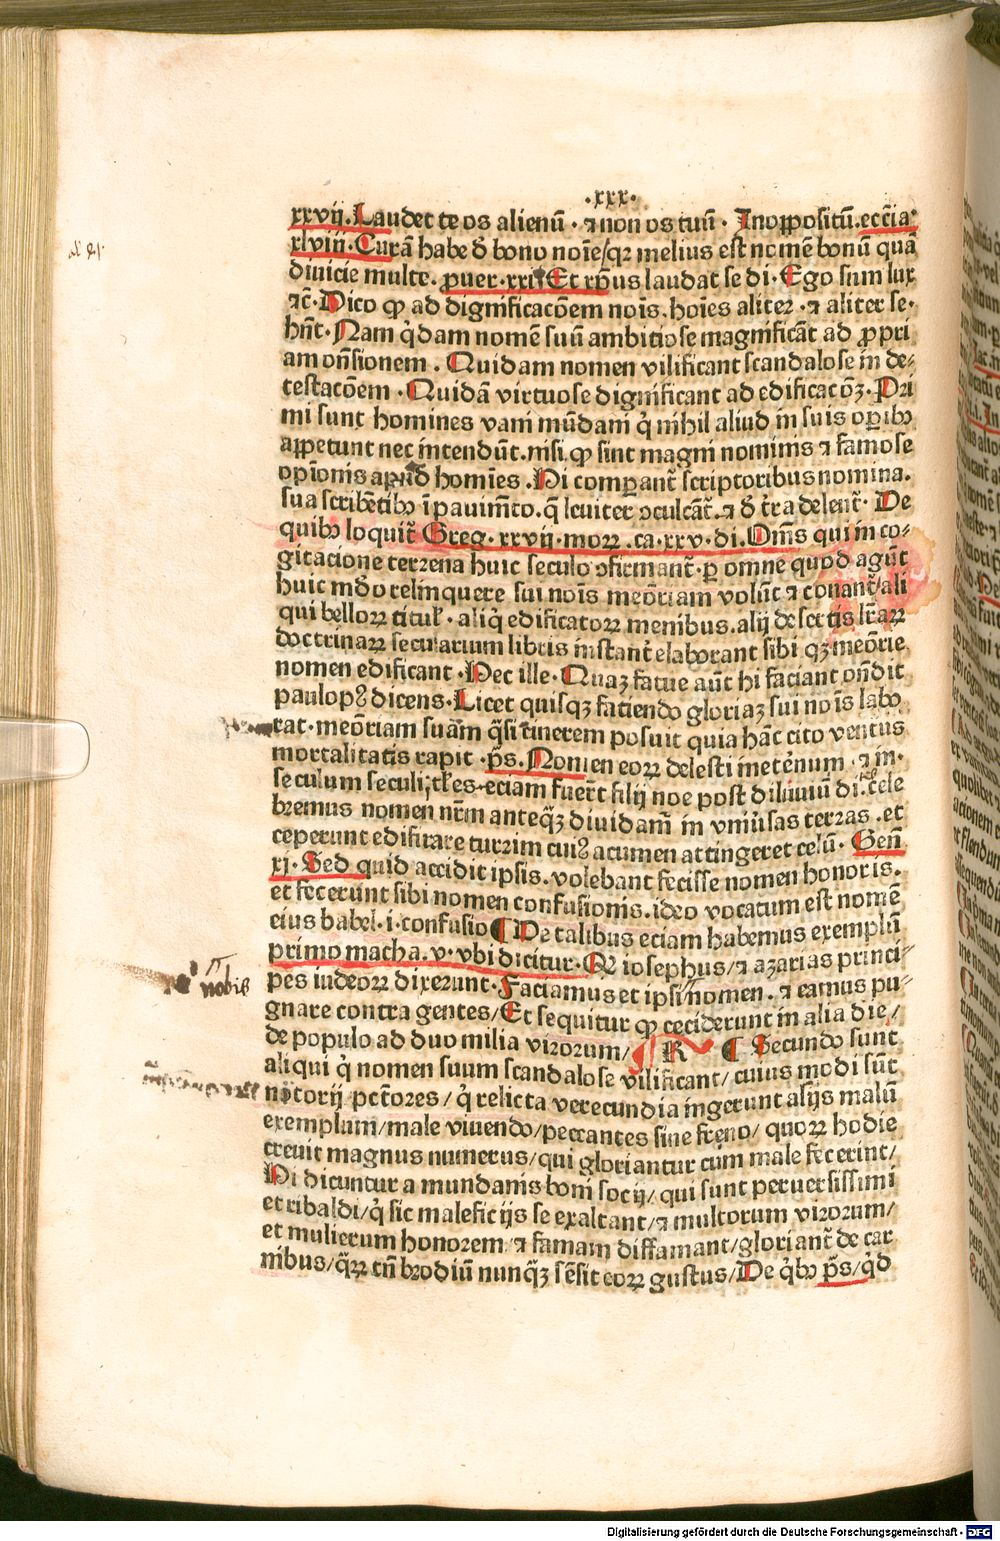 ·xxx·
xxvij. Laudet te os alienū · ⁊ non os tuū · In oppositū. eccīa·
xlviij · Curā habe d̄ bono noīe/ qꝛ melius est nomē bonū quā
diuicie multe. ꝓuer · xxij Et xp̄us laudat se di · Ego sum lux
⁊c̄ · Dico ꝙ ad dignificacōem noīs. hoīes aliter · ⁊ aliter se·
hn̄t · Nam q̇dam nomē suū ambitiose magnificāt ad ꝓpri
am on̄sionem . Quidam nomen vilificant scandalose in de⸗
testacōem · Quidā virtuose dignificant ad edificacōꝫ · Pri
mi sunt homines vani mūdani q̇ nihil aliud in suis oꝑibꝰ
appetunt nec intendūt. nisi ꝙ sint magni nominis ⁊ famose
opīonis apud homīes . Hi compant̄ scriptoribus nomina.
sua scribētibꝰ ī pauimēto. q̄ leuiter ↄculcāt̄. ⁊ d̄ t̄ra delent̄ · De
quibꝰ loquit̄ Greg. xxvij · moꝝ . ca · xxv · di. Om̄s qui in co⸗
gitacione terrena huic seculo ↄfirmant̄ · ꝑ omne quod agūt
huic mūdo relinquere sui noīs meōriam volūt ⁊ conant̄ ali
qui belloꝝ titul̓ · aliq̇ edificatoꝝ menibus. alij desertis lr̄aꝝ
doctrinaꝝ secularium libris instant̄ elaborant sibi qꝫ meōrie
nomen edificant · Hec ille · Quaꝫ fatue aūt hi faciant on̄dit
paulopꝰ dicens · Licet quisqꝫ faciendo gloriaꝫ sui noīs labo
rat · meōriam suam q̄si cinerem posuit quia hāc cito ventus
mortalitatis rapit · p̄s. Nomen eoꝝ delesti ineternum · ⁊ in·
seculum seculi; tales eciam fuer̄t filij noe post diluuiū di. Cele
bremus nomen nr̄m anteqꝫ diuidam̄ in vniūsas terras . et
ceperunt edificare turrim cuiꝰ acumen attingeret celū · Gen̄
xj · Sed quid accidit ipsis. volebant fecisse nomen honoris.
et fecerunt sibi nomen confusionis. ideo vocatum est nomē
eius babel · i · confusio ¶ De talibus eciam habemus exemplū
primo macha. v · vbi dicitur · Qꝛ iosephus/ ⁊ azarias princi⸗
pes iudeoꝝ dixerunt · Faciamus et ipsi nomen. ⁊ eamus pu⸗
nobis
gnare contra gentes/ Et sequitur ꝙ ceciderunt in alia die/
de populo ad duo milia virorum/ ¶ R ¶ Secundo sunt
aliqui q̇ nomen suum scandalose vilificant/ cuius modi sūt
notorij pctōres/ q̇ relicta verecundia ingerunt alijs malū
exemplum/ male viuendo/ peccantes sine freno/ quoꝝ hodie
creuit magnus numerus/ qui gloriantur cum male fecerint/
Hi dicuntur a mundanis boni socij/ qui sunt peruersissimi
et ribaldi/ q̇ sic maleficijs se exaltant/ ⁊ multorum virorum/
et mulierum honorem ⁊ famam diffamant/ gloriant̄ de car
nibus/ q̄ꝝ tn̄ brodiū nunqꝫ sēsit eoꝝ gustus/ De q̇bꝰ p̄s/ q̇d
Digitalisierung gefördert durch die Deutsche Forschungsgemeinschaft - DFG